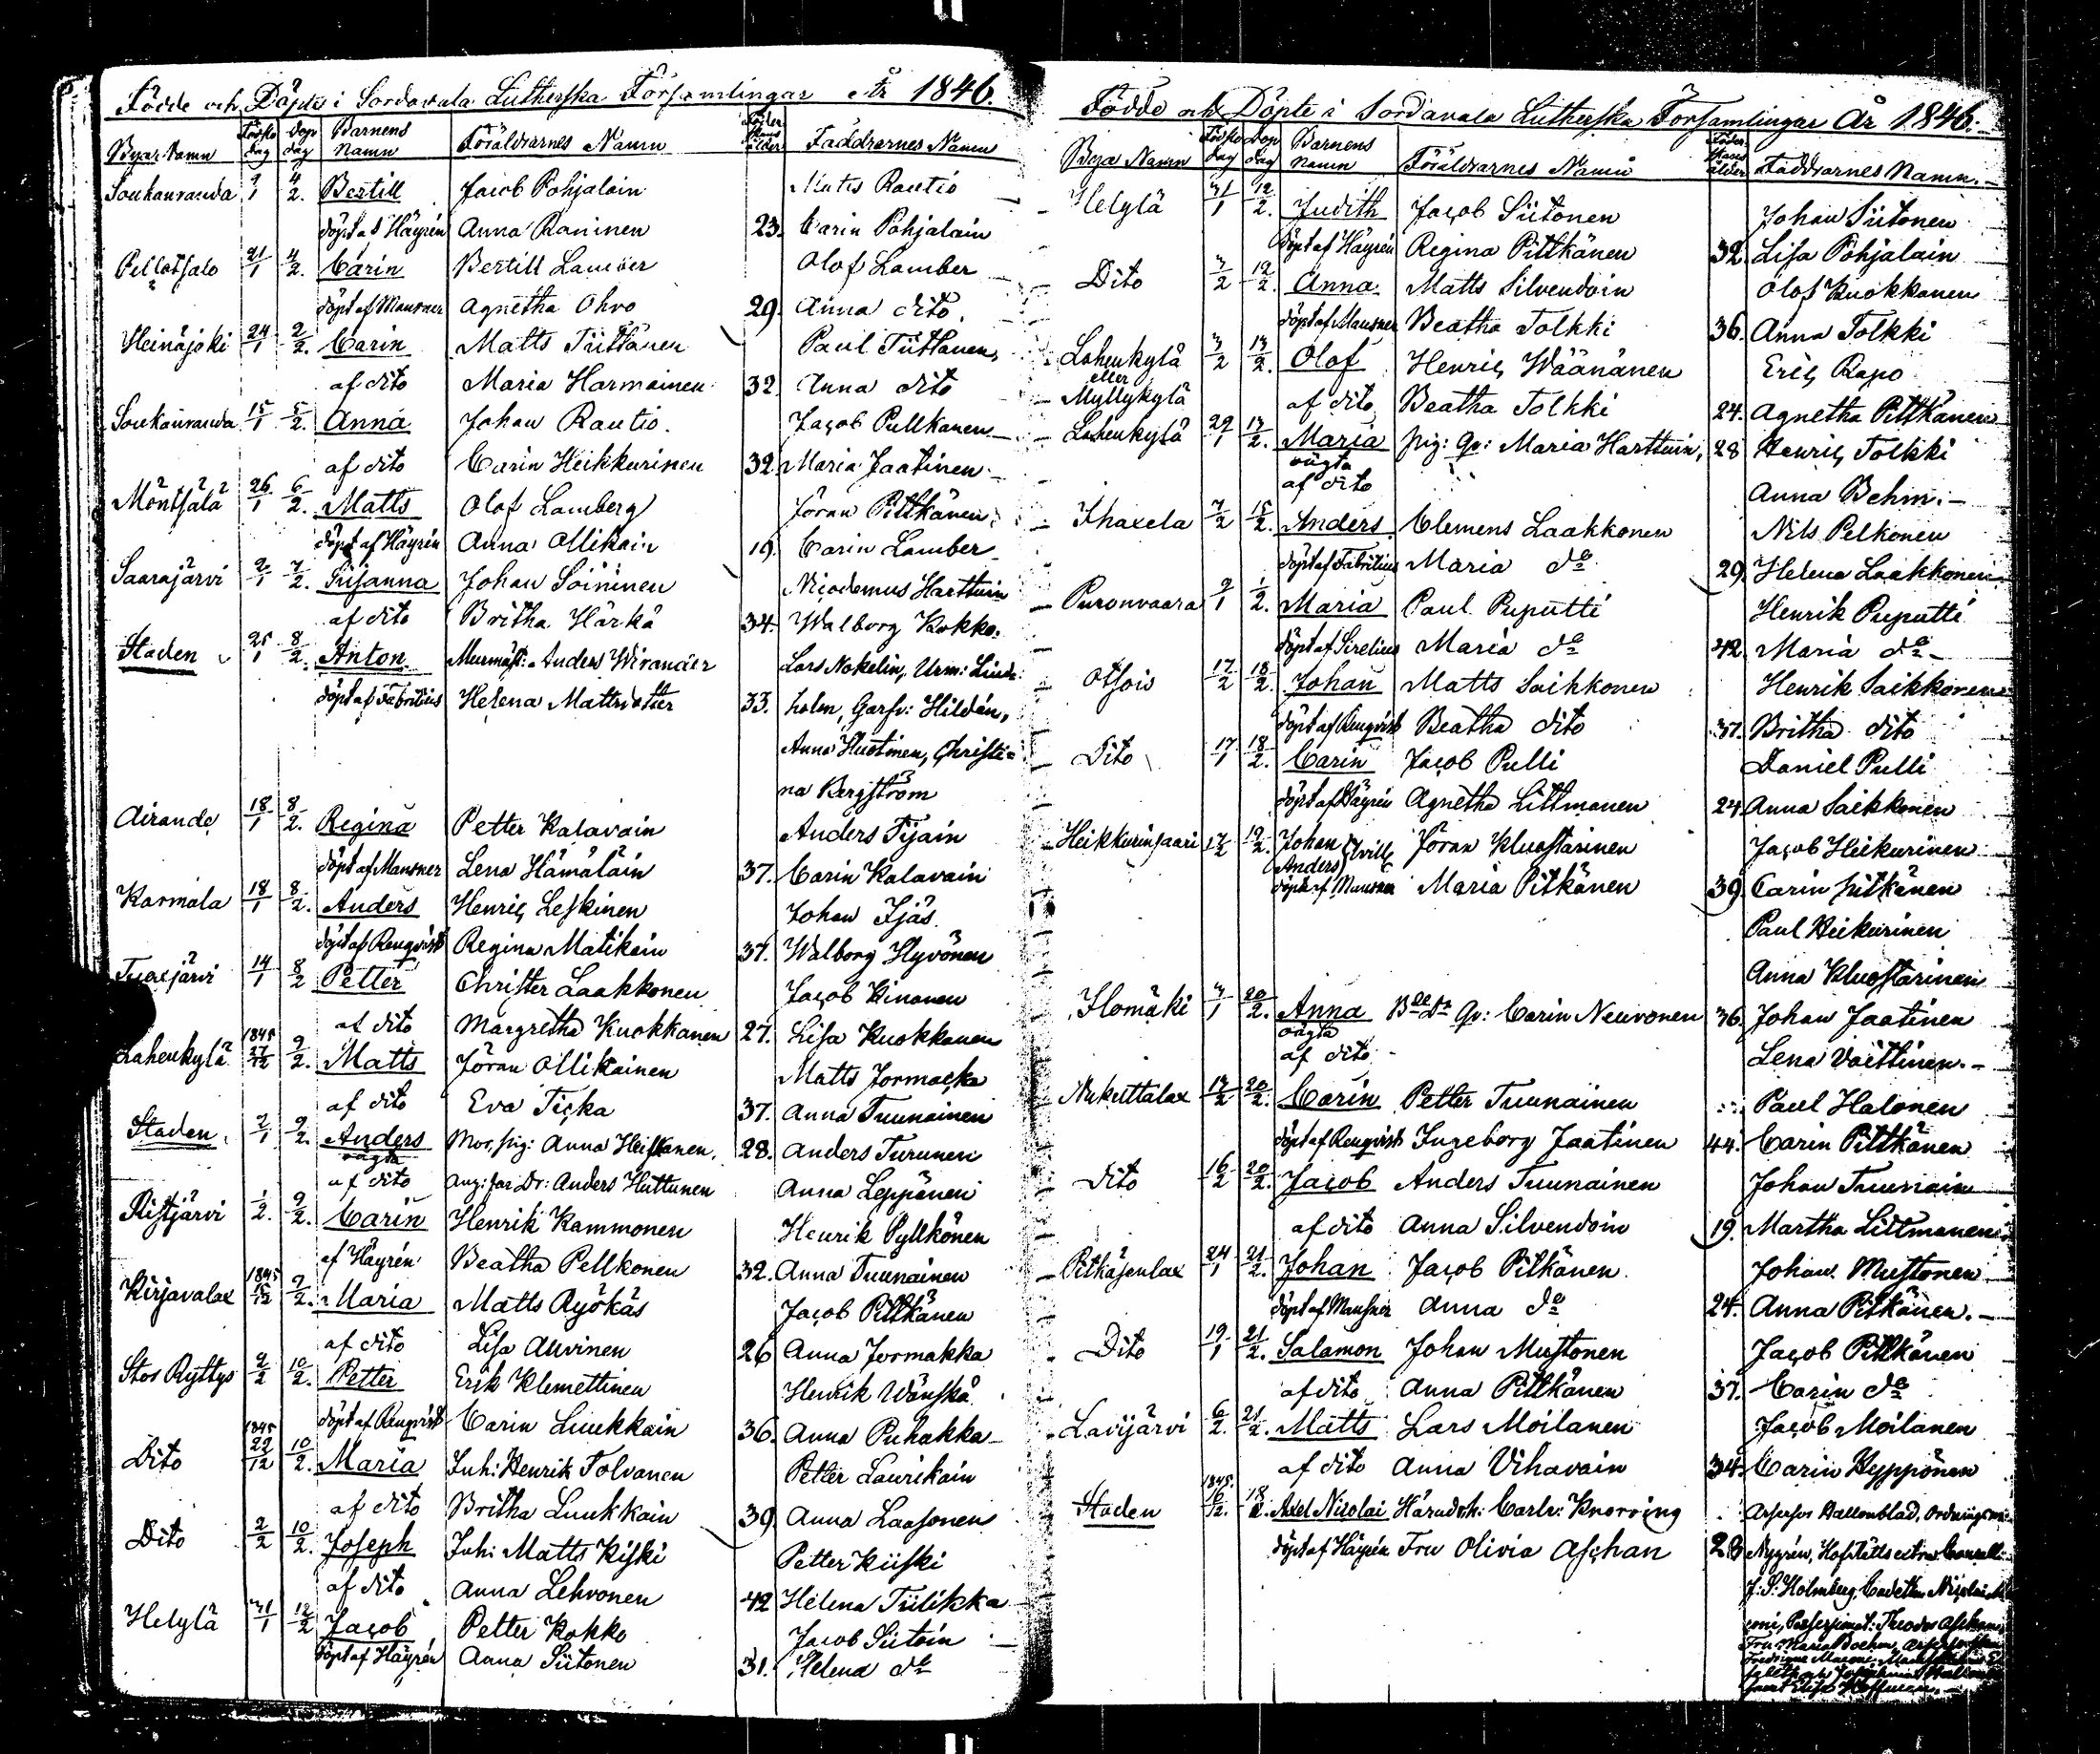 Födde och Döpte i Sordavala Lutherska Församlingar År 1846.
Byar Namn Födslo dag Dop dag Barnens Namn Föräldrarnes Namn Föder skans ålder Faddrarnes Namn
Soukanranda 9/1 4/2. Bertill Jacob Pohjalain Matts Rautio
döpt af Häyrén Anna Raninen 23. Carin Pohjalain
Pellotsalo 21/1 4/2. Carin Bertill Lamber Olof Lamber
döpt af Mausner Agnetha Ohvo 29. Anna dito.
Heinäjoki 24/1 2/2. Carin Matts Tiittanen Paul Tiittanen,
af dito Maria Harmainen 32. Anna dito
Soukanranda 15/1 5/2. Anna Johan Rautio. Jacob Pullkanen
af dito Carin Heikkurinen 32. Maria Jaatinen
Möntsälä 26/1 6/2. Matts Olof Lamberg Jöran Pittkänen
döpt af Häyrén Anna Ollikain 19. Carin Lamber
Saarajärvi 2/1 7/2. Susanna Johan Soininen Nicodemus Harttuin
af dito Britha Härkä 34. Walborg Kokko.
Staden 25/1 8/2. Anton Murmäst: Anders Wirander Lars Nokelin, Urm: Lind-
döpt af Fabritius Helena Mattsdotter 33. holm, Garfv: Hildén,
Anna Huotinen, Christi=
na Bergström
Airande 18/1 8/2. Regina Petter Kalavain Anders Tijain
döpt af Mausner Lena Hämäläin 37. Carin Kalavain
Karmala 18/1 8/2. Anders Henric Leskinen Johan Ijäs
döpt af Renqvist Regina Matikain 37. Walborg Hyvönen
Tuoxjärvi 14/1 8/2 Petter Christer Laakkonen Jacob Kinanen
af dito Margretha Kuokkanen 27. Lisa Kuokkanen
Lahenkylä 1845 27/12 9/2. Matts Jöran Ollikainen Matts Jormacka
af dito Eva Ticka 37. Anna Tuunainen
Staden 7/1 9/2. Anders Mor, pig: Anna Heiskanen. 28. Anders Turunen
oägta
af dito ang: far Dr: Anders Huttunen Anna Leppänen
Ristjärvi 1/2. 9/2. Carin Henrik Kammonen Henrik Pyllkönen
af Häyrén Beatha Pellkonen 32. Anna Tuunainen
Kirjavalax 1845 15/12 9/2. Maria Matts Ryökäs Jacob Pittkänen
af dito Lisa Auvinen 26 Anna Jormakka
Stor Ryttys 2/2 10/2. Petter Erik Klemettinen Henrik Wänskä
döpt af Renqvist Carin Liukkain 36. Anna Puhakka
Dito 1845 22/12 10/2. Maria Inh: Henrik Tolvanen Petter Laurikain
af dito Britha Luukkain 39. Anna Laasonen
Dito 2/2 10/2. Joseph Inh: Matts Kiski Petter Kiiski
af dito Anna Lehvonen 42 Helena Tiilikka
Helylä 31/1 12/2 Jacob Petter Kokko Jacob Siitoin
döpt af Häyrén Anna Siitonen 31. Helena do
Födde och Döpte i Sordavala Lutherska Församlingar År 1846.
Byar Namn Födslo dag Dop dag Barnens Namn Föräldrarnes Namn Föder skans ålder Faddrarnes Namn.
Helylä 31/1 12/2. Judith Jacob Siitonen Johan Siitonen
döpt af Häyrén Regina Pittkänen 32. Lisa Pohjalain
Dito 3/2 12/2. Anna Matts Silvendoin Olof Kuokkanen
döpt af Mausner Beatha Tolkki 36. Anna Tolkki
Lahenkylä 3/2 13/2. Olof Henric Wäänänen Eric Rapo
eller
Myllykylä af dito Beatha Tolkki 24. Agnetha Pittkänen
Lahenkylä 29/1 13/2. Maria pig: Qv: Maria Harttuin, 28 Henric Tolkki
oägta
af dito Anna Behm.
Ihaxela 7/2 15/2. Anders Clemens Laakkonen Nils Pelkonen
döpt af Fabritius Maria do 29. Helena Laakkonen
Puronvaara 9/1 1/2. Maria Paul Puputti Henrik Puputti
döpt af Sirelius Maria do 42. Maria do
Otsois 17/2 18/2. Johan Matts Saikkonen Henrik Saikkonen
döpt af Renqvist Beatha dito 37. Britha dito
Dito 17/1 18/2. Carin Jacob Pulli Daniel Pulli
döpt af Häyrén Agnetha Littmanen 24 Anna Saikkonen
Heikkurinsaari 17/2 19/2. Johan Anders tvill: Jöran Kluostarinen Jacob Heikurinen
döpt af Mausner Maria Pitkänen 39. Carin Pitkänen
Paul Heikurinen
Anna Kluostarinen
Ilomäki 3/1 20/2. Anna Bde Dr Qv: Carin Neuvonen 36. Johan Jaatinen
oägta
af dito Lena Voittinen.
Nukuttalax 14/2 20/2. Carin Petter Tuunainen Paul Halonen
döpt af Renqvist Ingeborg Jaatinen 44. Carin Pittkänen
Dito 16/2 20/2. Jacob Anders Tuunainen Johan Tuunain
af dito Anna Silvendoin 19. Martha Littmanen
Pitkäjenlax 24/1 21/2. Johan Jacob Pitkänen Johan Mustonen
döpt af Mausner Anna do 24. Anna Pitkänen.
Dito 19/1 21/2. Salamon Johan Mustonen Jacob Pittkänen
af dito Anna Pittkänen 37. Carin do
Lavijärvi 6/2. 21/2. Matts Lars Moilanen Jacob Moilanen
af dito Anna Vihavain 34. Carin Hyppönen
Staden 1845. 16/12. 18/2. Axel Nicolai Häradsh: Carl v: Knorring Assessor Hallonblad, Ordningsm:
döpt af Häyrén Fru Olivia Aschan 28 Nygrén, Hofrätts extra Cancelli
J: P: Holmberg, Cadetten Nicolai
Theodor Aschan
Fru Maria Boehm,